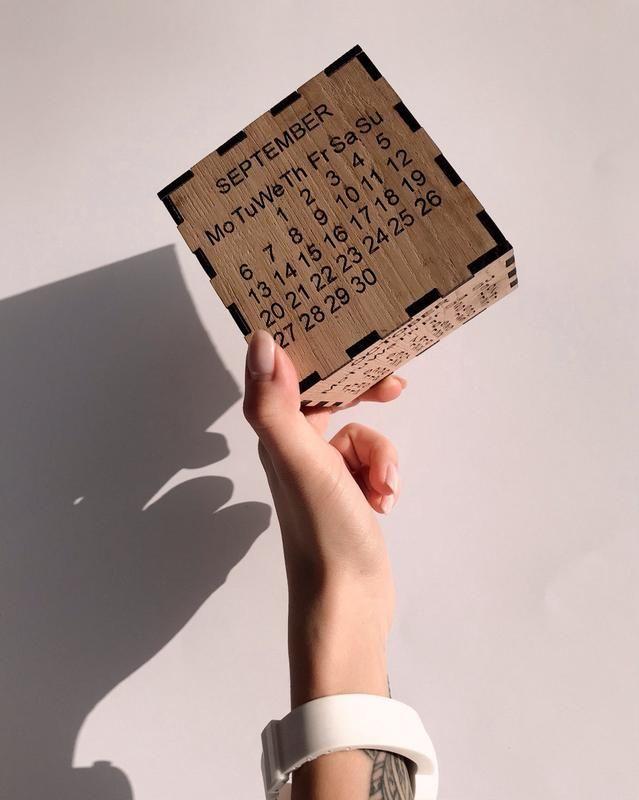 SEPTEMBER
Mo Tu We Th Fr Sa Su
1 2 3 4 5
6 7 8 9 10 11 12
13 14 15 16 17 18 19
20 21 22 23 24 25 26
27 28 29 30